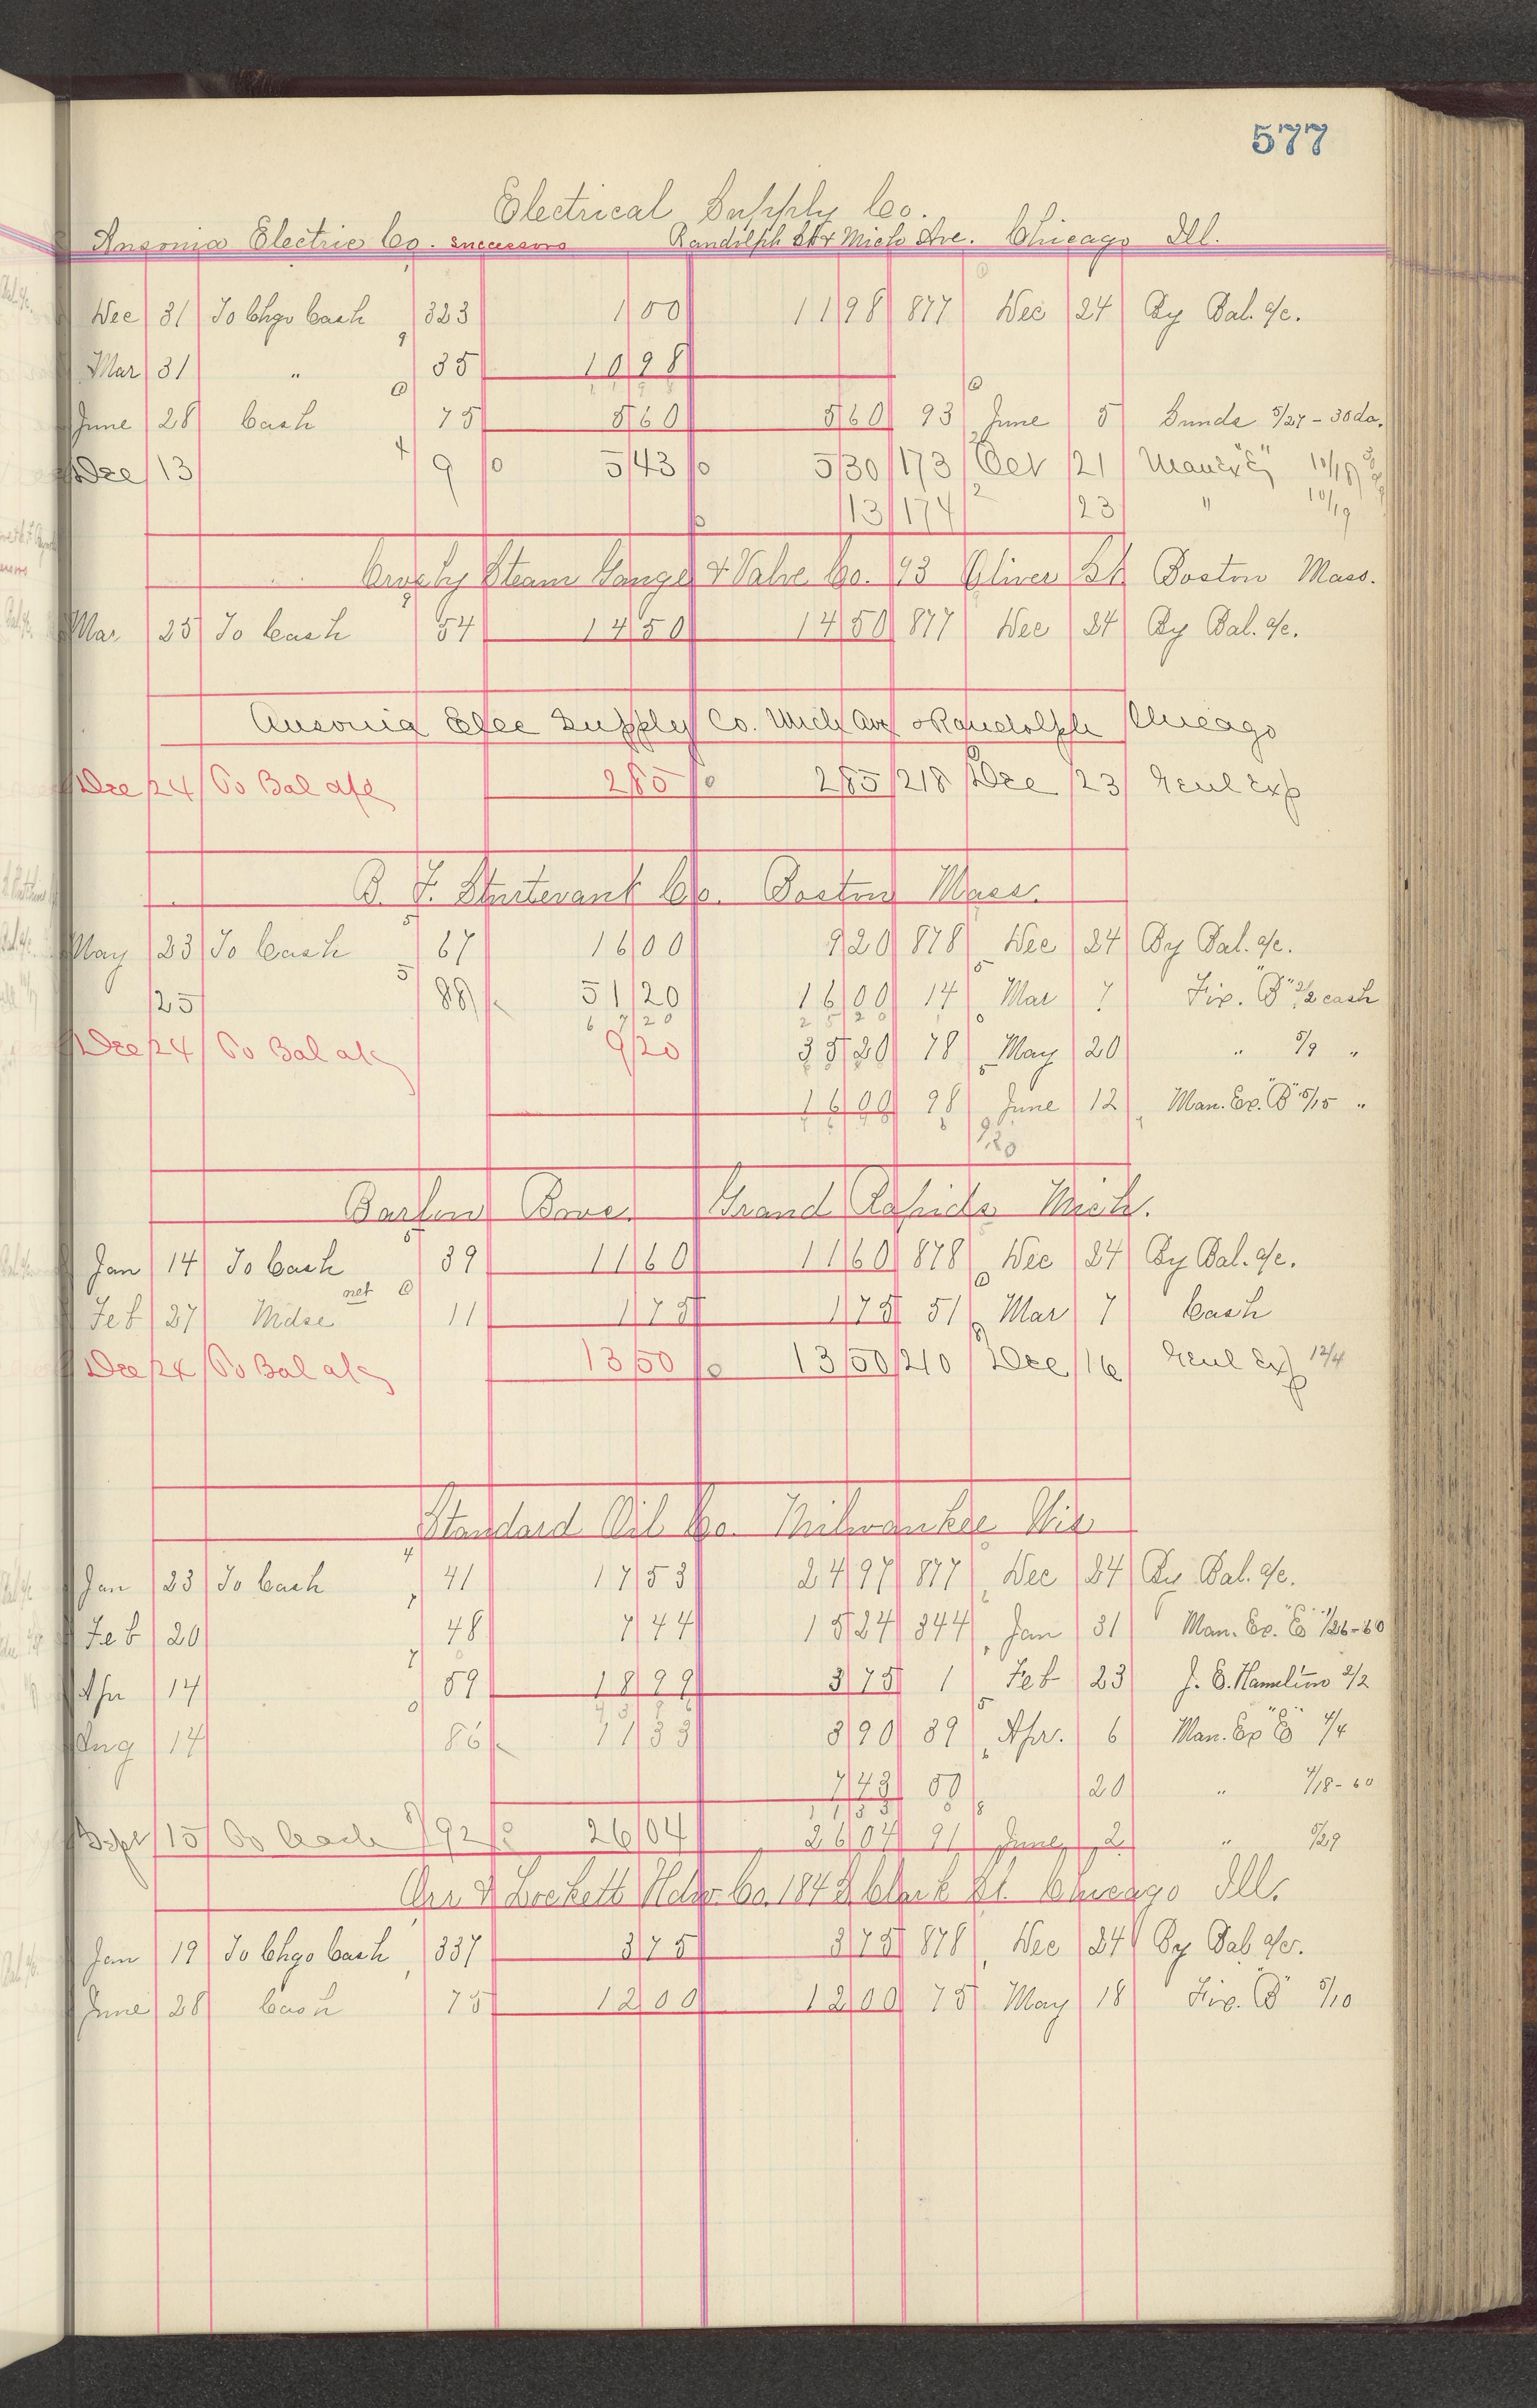 577
Electrical Supply Co.
Ansonia Electric Co. successors Randolph St & Mich Ave. Chicago Ill.
Dec 31 To Chgo Cash 323 1 00 11 98 877 Dec 24 By Bal. a/c.
Mar 31 " 35 10 98
June 28 Cash 75 5 60 5 60 93 June 5 Sunds 5/27 - 30da.
Dec 13 9 5 43 5 30 173 Oct 21 Man Ex "E" 10/18
13 174 23 " 10/19
Crosby Steam Gauge & Valve Co. 93 Oliver St Boston Mass.
Mar 25 To Cash 54 14 50 14 50 877 Dec 24 By Bal. a/c.
Ansonia Elec Supply Co. Mich Ave & Randolph Chicago
Dec 24 To Bal a/c 2 85 2 85 218 Dec 23 Genl Exp
B. F. Sturtevant Co. Boston Mass.
May 23 To Cash 67 16 00 9 20 878 Dec 24 By Bal. a/c.
25 88 51 20 16 00 14 Mar 7 Fix. "B" 3/2 cash
67 20 25 20
Dec 24 To Bal a/c 9 20 35 20 78 May 20 " 5/9 "
16 00 98 June 12 Man. Ex. "B" 5/15 "
9 20
Barlow Bros. Grand Rapids Mich.
Jan 14 To Cash 39 11 60 11 60 878 Dec 24 By Bal. a/c.
Feb 27 Mdse net 11 1 75 1 75 51 Mar 7 Cash
Dec 24 To Bal a/c 13 50 13 50 210 Dec 16 Genl Exp 12/4
Standard Oil Co. Milwaukee Wis
Jan 23 To Cash 41 17 53 24 97 877 Dec 24 By Bal. a/c.
Feb 20 48 7 44 15 24 344 Jan 31 Man. Ex. "E" 1/26-60
Apr 14 59 18 99 3 75 1 Feb 23 J. E. Hamelino 2/2
Aug 14 86 11 33 3 90 39 Apr. 6 Man. Ex "E" 4/4
7 43 50 20 " 4/18-60
11 33
Sept 15 To Cash 92 26 04 26 04 91 June 2 " 5/29
Orr & Lockett Hdw. Co. 184 S Clark St. Chicago Ill.
Jan 19 To Chgo Cash 337 3 75 3 75 878 Dec 24 By Bal a/c.
June 28 Cash 75 12 00 12 00 75 May 18 Fix. "B" 5/10